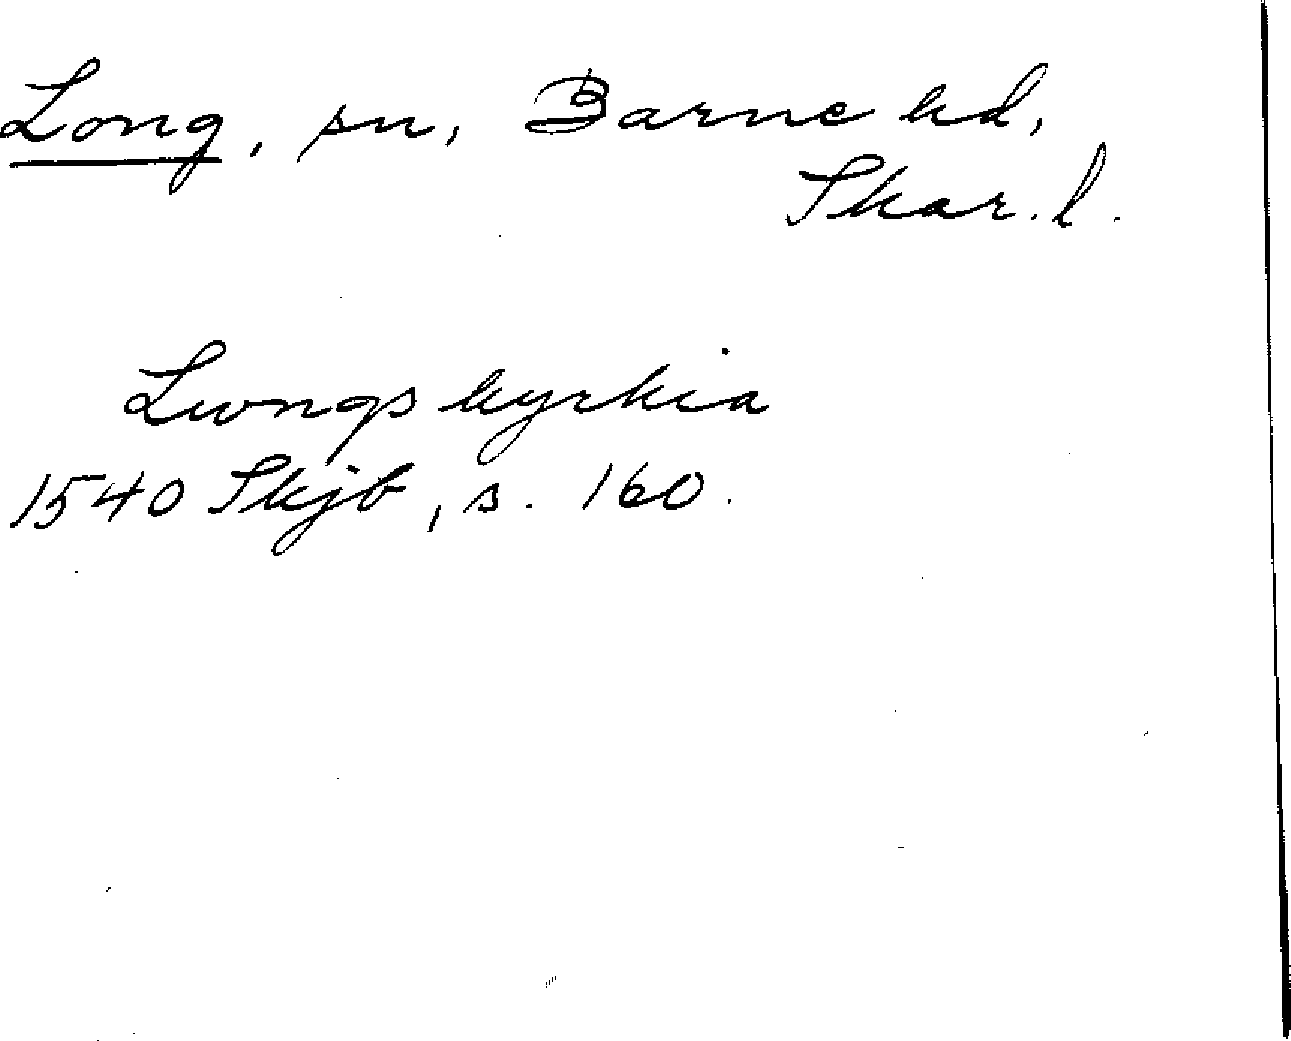 Long, sn, Barne hd,
Skar. l.
Lwngs kyrkia
1540 Skjb, s. 160.